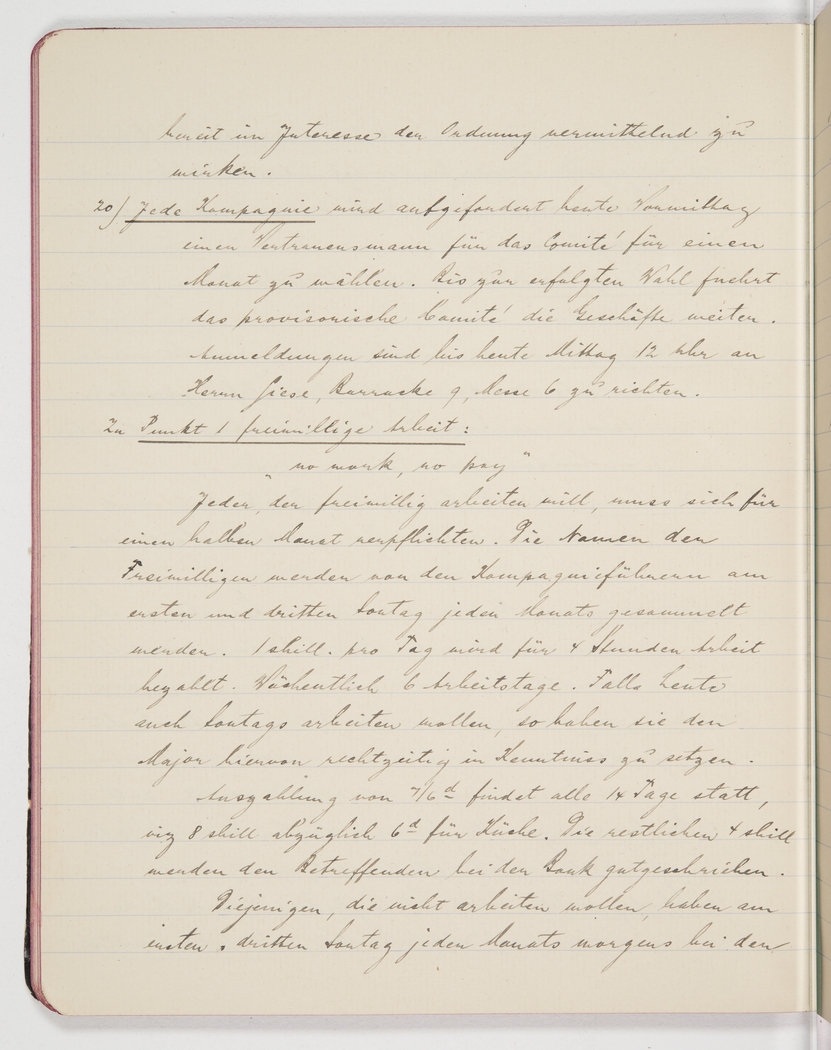 bereit im Interesse der Ordnung vermittelnd zu
wirken.
20) Jede Kompagnie wird aufgefordert heute Vormittag
einen Vertrauensmann für das Comité für einen
Monat zu wählen. Bis zur erfolgten Wahl fuehrt
das provisorische Comité die Geschäfte weiter.
Anmeldungen sind bis heute Mittag 12 Uhr an
Herrn Giese, Barracke 9, Messe 6 zu richten.
Zu Punkt 1 freiwillige Arbeit:
"no work, no pay"
Jeder, der freiwillig arbeiten will, muss sich für
einen halben Monat verpflichten. Die Namen der
Freiwilligen werden von den Kompagnieführern am
ersten und dritten Sontag jeden Monats gesammelt
werden. 1 shill. pro Tag wird für 4 Stunden Arbeit
bezahlt. Wöchentlich 6 Arbeitstage. Falls Leute
auch Sontags arbeiten wollen, so haben sie den
Major hiervon rechtzeitig in Kenntniss zu setzen.
Auszahlung von 7/6d findet alle 14 Tage statt,
viz 8 shill abzüglich 6d für Küche. Die restlichen 4 shill
werden den Betreffenden bei der Bank gutgeschrieben.
Diejenigen, die nicht arbeiten wollen, haben am
ersten dritten Sontag jeden Monats morgens bei der